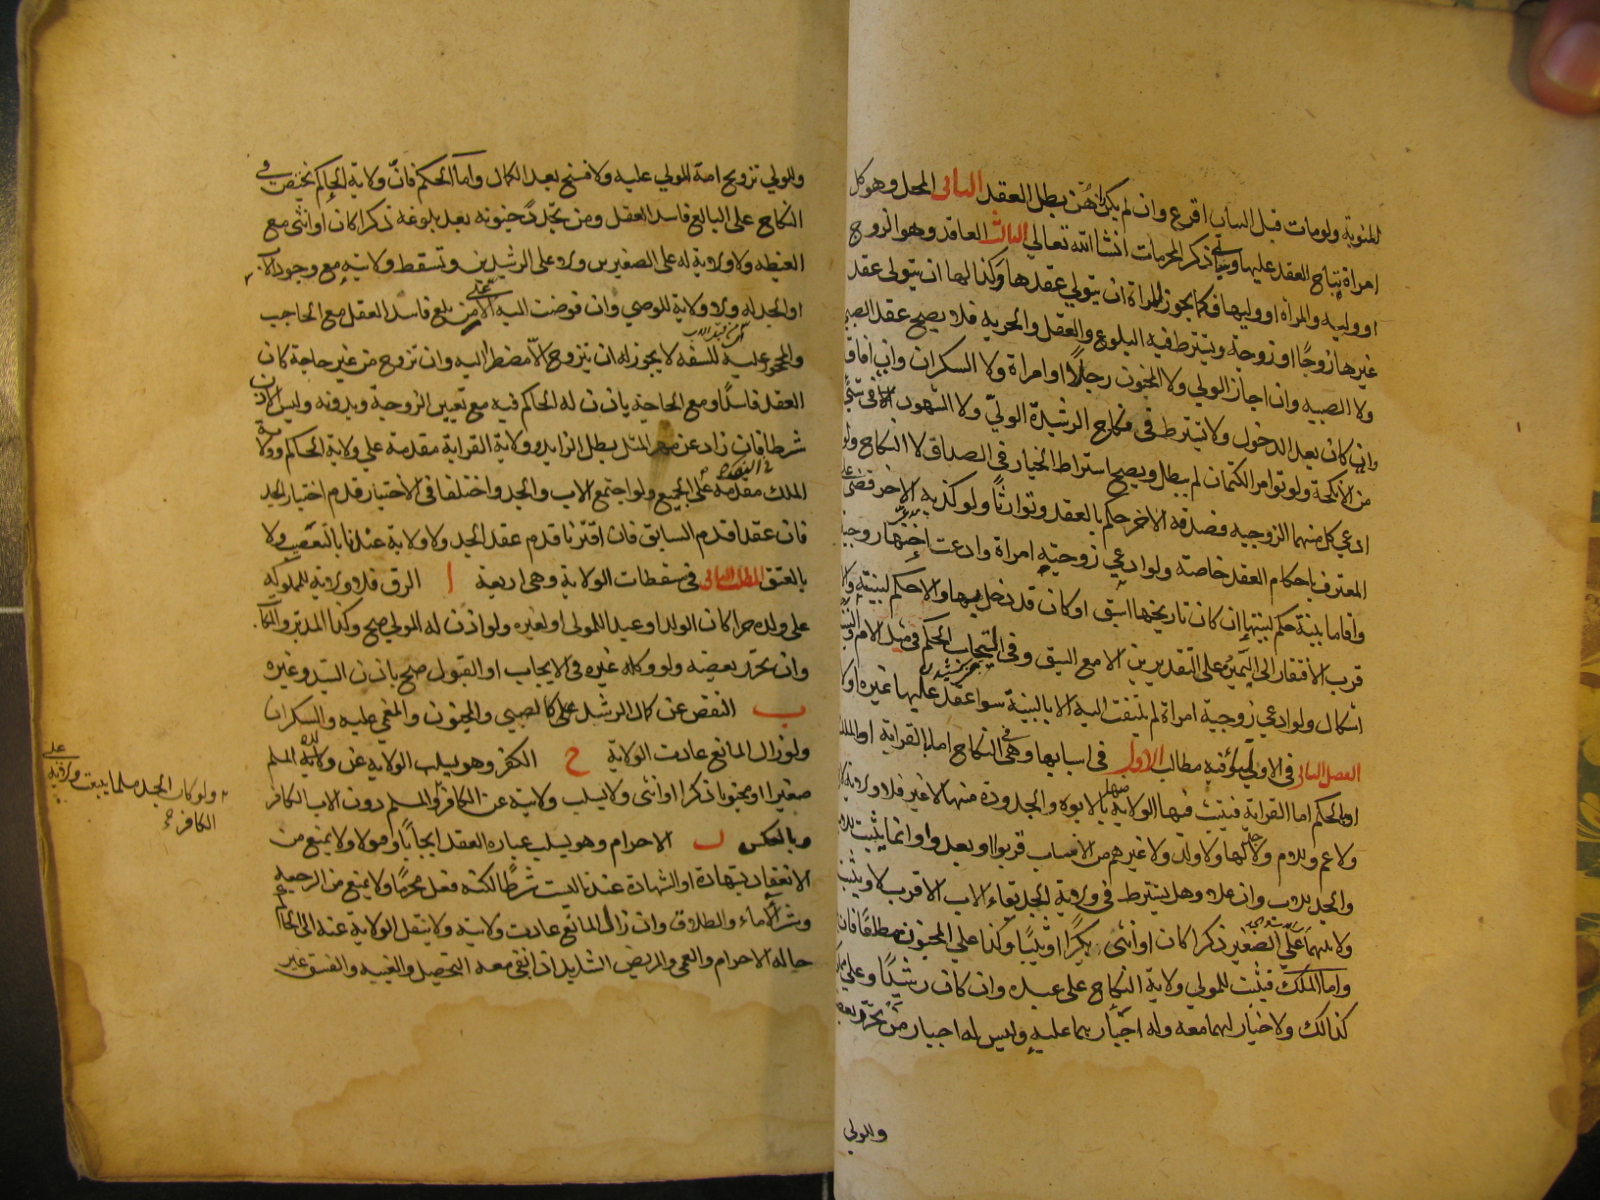 للمنوية ولو مات قبل البيان اقرع وان لم يكن اهن بطل العقد الثانى المحل وهو كل
امراة يباح العقد عليها وسياتي ذكر المحرمات انشا الله تعالي الثالث العاقد وهو الزوج
او وليه والمراة او وليها فكما يجوز للمراة ان يتولي عقدها وكذا لها ان يتولي عقد
غيرها زوجًا او زوجة ويشترط فيه البلوغ والعقل والحرية فلا يصح عقد الصبي
ولا الصبيه وان اجاز الولي ولا المجنون رجلًا او امراة ولا السكران وان افاق
وان كان بعد الدخول ولا يشترط فى نكاح الرشيدة الوليّ ولا الشهود الا فى شئ
من الانكحة ولو توامرا الكتمان لم يبطل ويصح اشتراط الخيار فى الصداق لا النكاح ولو
ادعي كل منهما الزوجيه فصدقه الاخر حكم بالعقد وتوارثا ولو كذبه الاخر قضى على
المعترف باحكام العقد خاصة ولو ادعي زوجيه امراة وادعت اختها زوجيته
واقاما بينة حكم لبينتها ان كان تاريخها اسبق او كان قد دخل بها والا حكم لبينته ولا
قرب الافتقار الى اليمين على التقديرين الا مع السبق وفى انسحاب الحكم فى مثل الام والبنت
اشكال ولو ادعي زوجية امراة لم يلتفت اليه الا بالبينة سوا عقد عليها غيره اولا
الفصل الثانى فى الاوليا وفيه مطالب الاول فى اسبابها وهى فى النكاح اما القرابة او الملك
او الحكم اما القرابة فيثبت فيها الولاية منها بالابوه والجدودة منها لا غير فلا ولاية لاخ
ولا عم ولا ام ولا جد لها ولا ولد ولا غيرهم من الانساب قربوا او بعدوا وانما يثبت للاب
والجد للاب وان علا وهل يشترط فى ولاية الجد بقاء الاب الاقرب لا ويثبت
ولايتهما علي الصغير ذكرا كان او انثى بكرًا او ثيبًا وكذا علي المجنون مطلقًا فان
واما الملك فيثبت للمولي ولاية النكاح على عبده وان كان رشيدًا وعلي امته
كذلك ولا خيار لهما معه وله اجبارهما عليه وليس له اجبار من تحرر بعضه
وللولي
وللولي تزويج امة المولي عليه ولا فسخ بعد الكمال واما الحكم فان ولاية الحاكم يختص في
النكاح على البالغ فاسد العقل ومن تجدد جنونه بعد بلوغه ذكرا كان او انثى مع
الغبطه ولا ولاية له على الصغيرين ولا على الرشيدين وتسقط ولايته مع وجود الاب
او الجد له ولا ولاية للوصي وان فوضت اليه الا على من بلغ فاسد العقل مع الحاجب
والمحجور عليه للسفه لا يجوز له ان يتزوج الا مضطرا اليه وان تزوج من غير حاجة كان
العقد فاسدًا ومع الحاجة ياذن له الحاكم فيه مع تعيين الزوجة وبدونه وليس الاذن
شرطا فان زاد عن مهر المثل بطل الزايد وولاية القرابة مقدمة علي ولاية الحاكم وولاية
الملك مقدمة علي الجميع ولو اجتمع الاب والجد واختلفا فى الاختيار قدم اختيار الجد
فان عقدا قدم السابق فان اقترنا قدم عقد الجد ولا ولاية عندنا بالتعصيب ولا
بالعتق المطلب الثانى فى مسقطات الولاية وهى اربعة ا الرق فلا ولاية لمملوك
على ولده حرا كان الولد او عبدا للمولى او لغيره ولو اذن له المولي صح وكذا المدبر والمكاتب
وان تحرر بعضه ولو وكله غيره فى الايجاب او القبول صح باذن السيد وغيره
ب النقص عن كمال الرشد كالصبي والمجنون والمغمي عليه والسكران
ولو زال المانع عادت الولاية ج الكفر وهو يسلب الولاية عن ولده المسلم
صغيرا او مجنونا ذكرا او انثى ولا يسلب ولايته عن الكافر ولو اسلم دون الاب الكافر
وبالعكس د الاحرام وهو يسلب عباره العقد ايجابًا وقبولا ولا يمنع من
الانعقاد بشهادة او الشهادة عندنا ليست شرطا لكنه فعل محرما ولا يمنع من الرجعية
وشراء الاماء والطلاق وان زال المانع عادت ولايته ولا ينتقل الولاية عنه الى الحاكم
حاله الاحرام والعمي والمرض الشديد ان بقي معه التحصيل والغيبه والفسق غير
ولو كان الجد مسلما يبقت ولايته على
الكافر